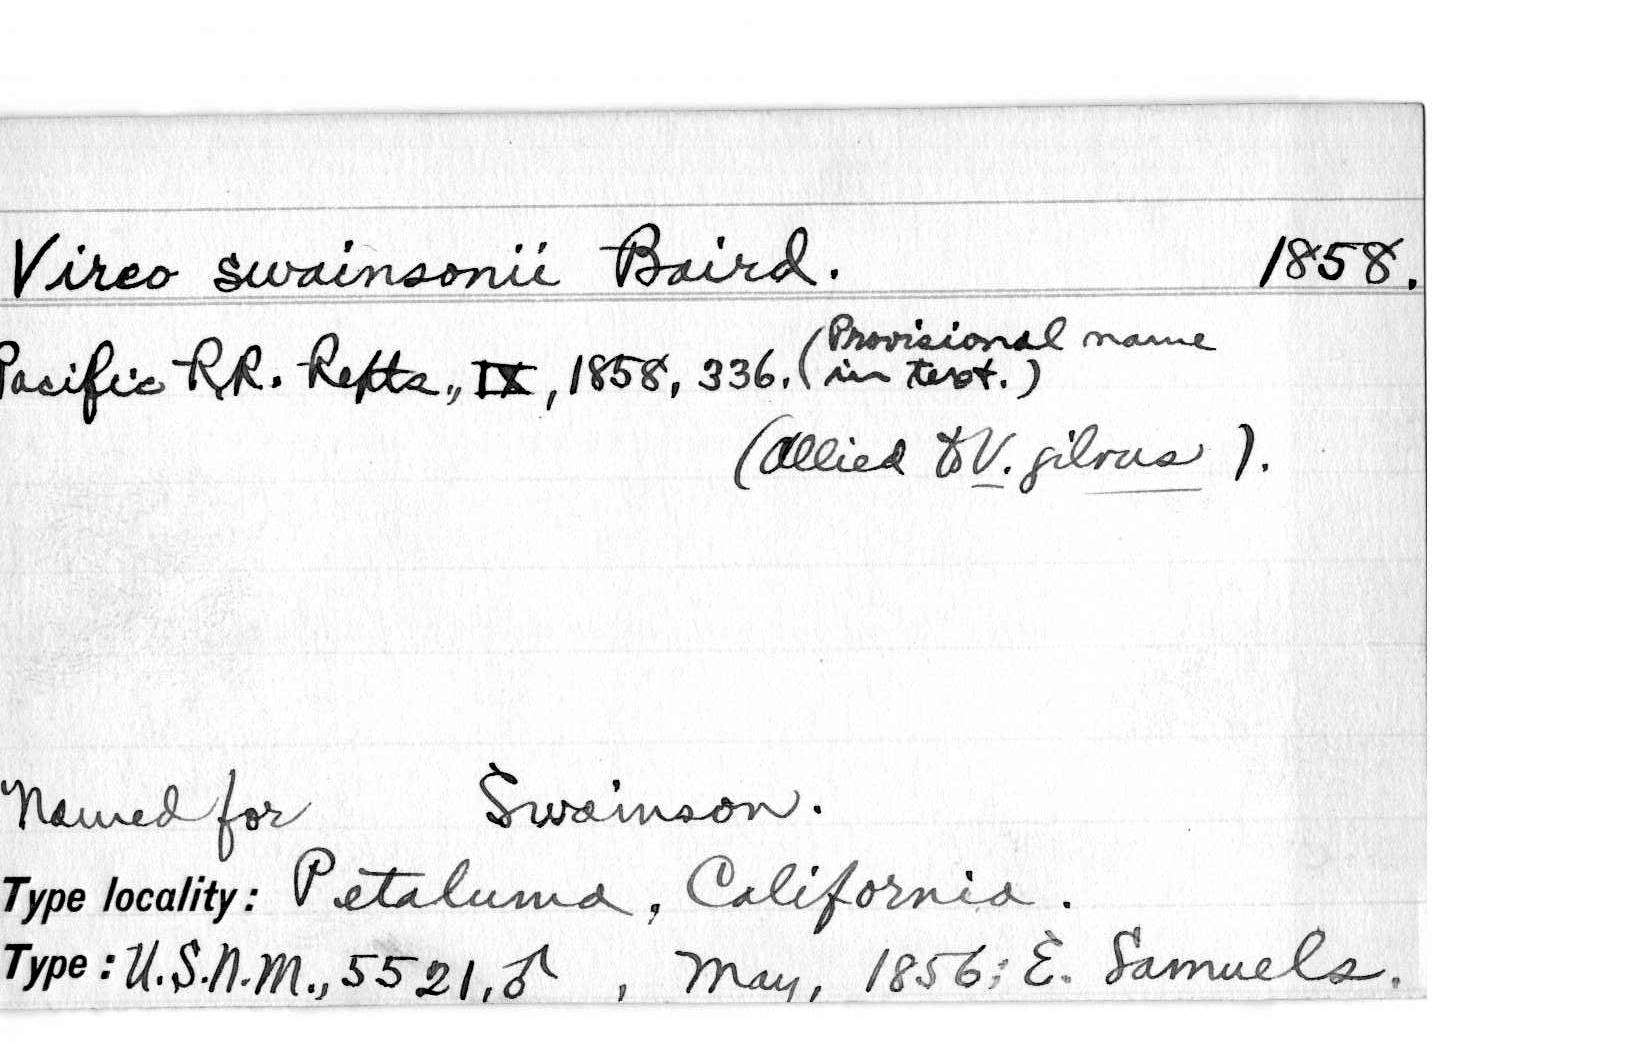 Vireo swainsonii Baird. 1858.
Pacific RR. Repts., IX, 1858, 336. (Provisional name
in text.)
(Allied to V. gilvus).
Named for Swainson.
Type locality: Petaluma, California.
Type: U.S.N.M., 5521, ♂ , May, 1856; E. Samuels.